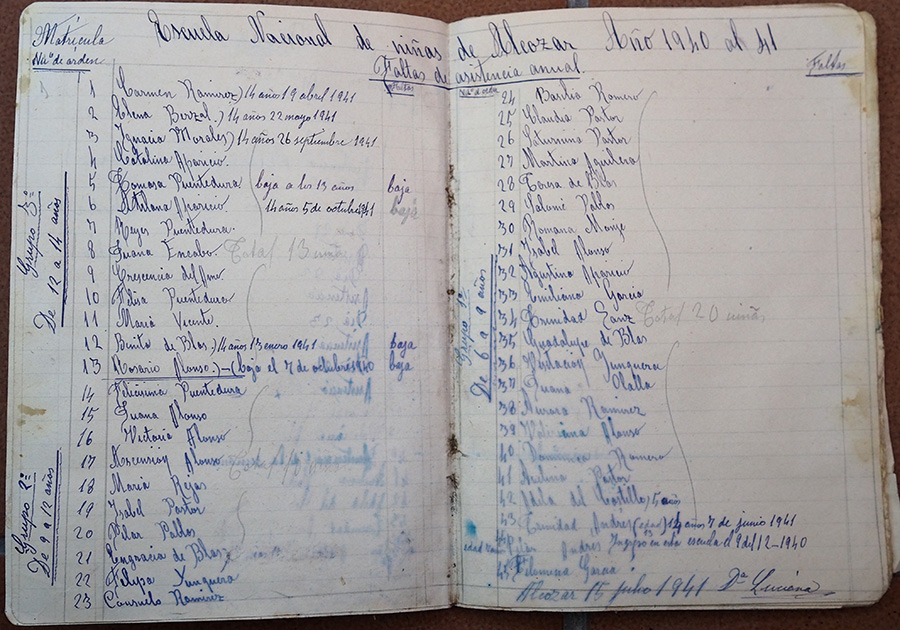 Matrícula
Nº de orden
Escuela Nacional de niñas de Alcozar Año 1940 al 41
Faltas de asistencia anual
Faltas
Faltas
Grupo 3º
De 12 a 14 años
1 Carmen Ramirez) 14 año 19 abril 1941
2 Elena Borzal.) 14 años 22 mayo 1941
3 Ignacia Morales) 14 años 26 septiembre 1941
4 Catalina Aparicio.
5 Tomasa Puentedura baja a los 13 años baja
6 Aparicio. 14 años 5 de octubre 1941 baja
7 Reyes Puentedura.
8 Juana Encabo. Total 13 niñas
9 Crescencia del Amo
10 Felisa Puentedura
11 María Vicente.
12 Benita de Blas.) 14 años 13 enero 1941 baja
13 Rosario Alonso.) - (baja el 7 de octubre 1940 baja
Grupo 2º
De 9 a 12 años
14 Felicisima Puentedura
15 Juana Alonso
16 Victoria Alonso
17 Ascension Alonso
18 María Rejas
19 Isabel Pastor
20 Pilar Pablos
21 Engracia de Blas
22 Felipa Yunquera
23 Consuelo Ramirez
Grupo 1º
De 6 a 9 años
24 Basilia Romero
25 Claudia Pastor
26 Saturnina Pastor
27 Martina Aguilera
28 Teresa de Blas
29 Salomé Pablos
30 Romana Monge
31 Isabel Alonso
32 Agustina Aparicio
33 Emiliana García
34 Trinidad Sanz Total 20 niñas
35 Guadalupe de Blas
36 Visitacion Yunquera
37 Juana Olalla
38 Aurora Ramirez
39 Valeriana Alonso
40 Dominica Romero
41 Avelina Pastor
42 del Castillo) 5 años
43 Trinidad Andrés (edad) 14 años 7 de junio 1941
44 Pilar Andres Ingresó en esta escuela el 9 del 12-1940
45 Filomena García
Alcozar 15 julio 1941 Dª Luciana